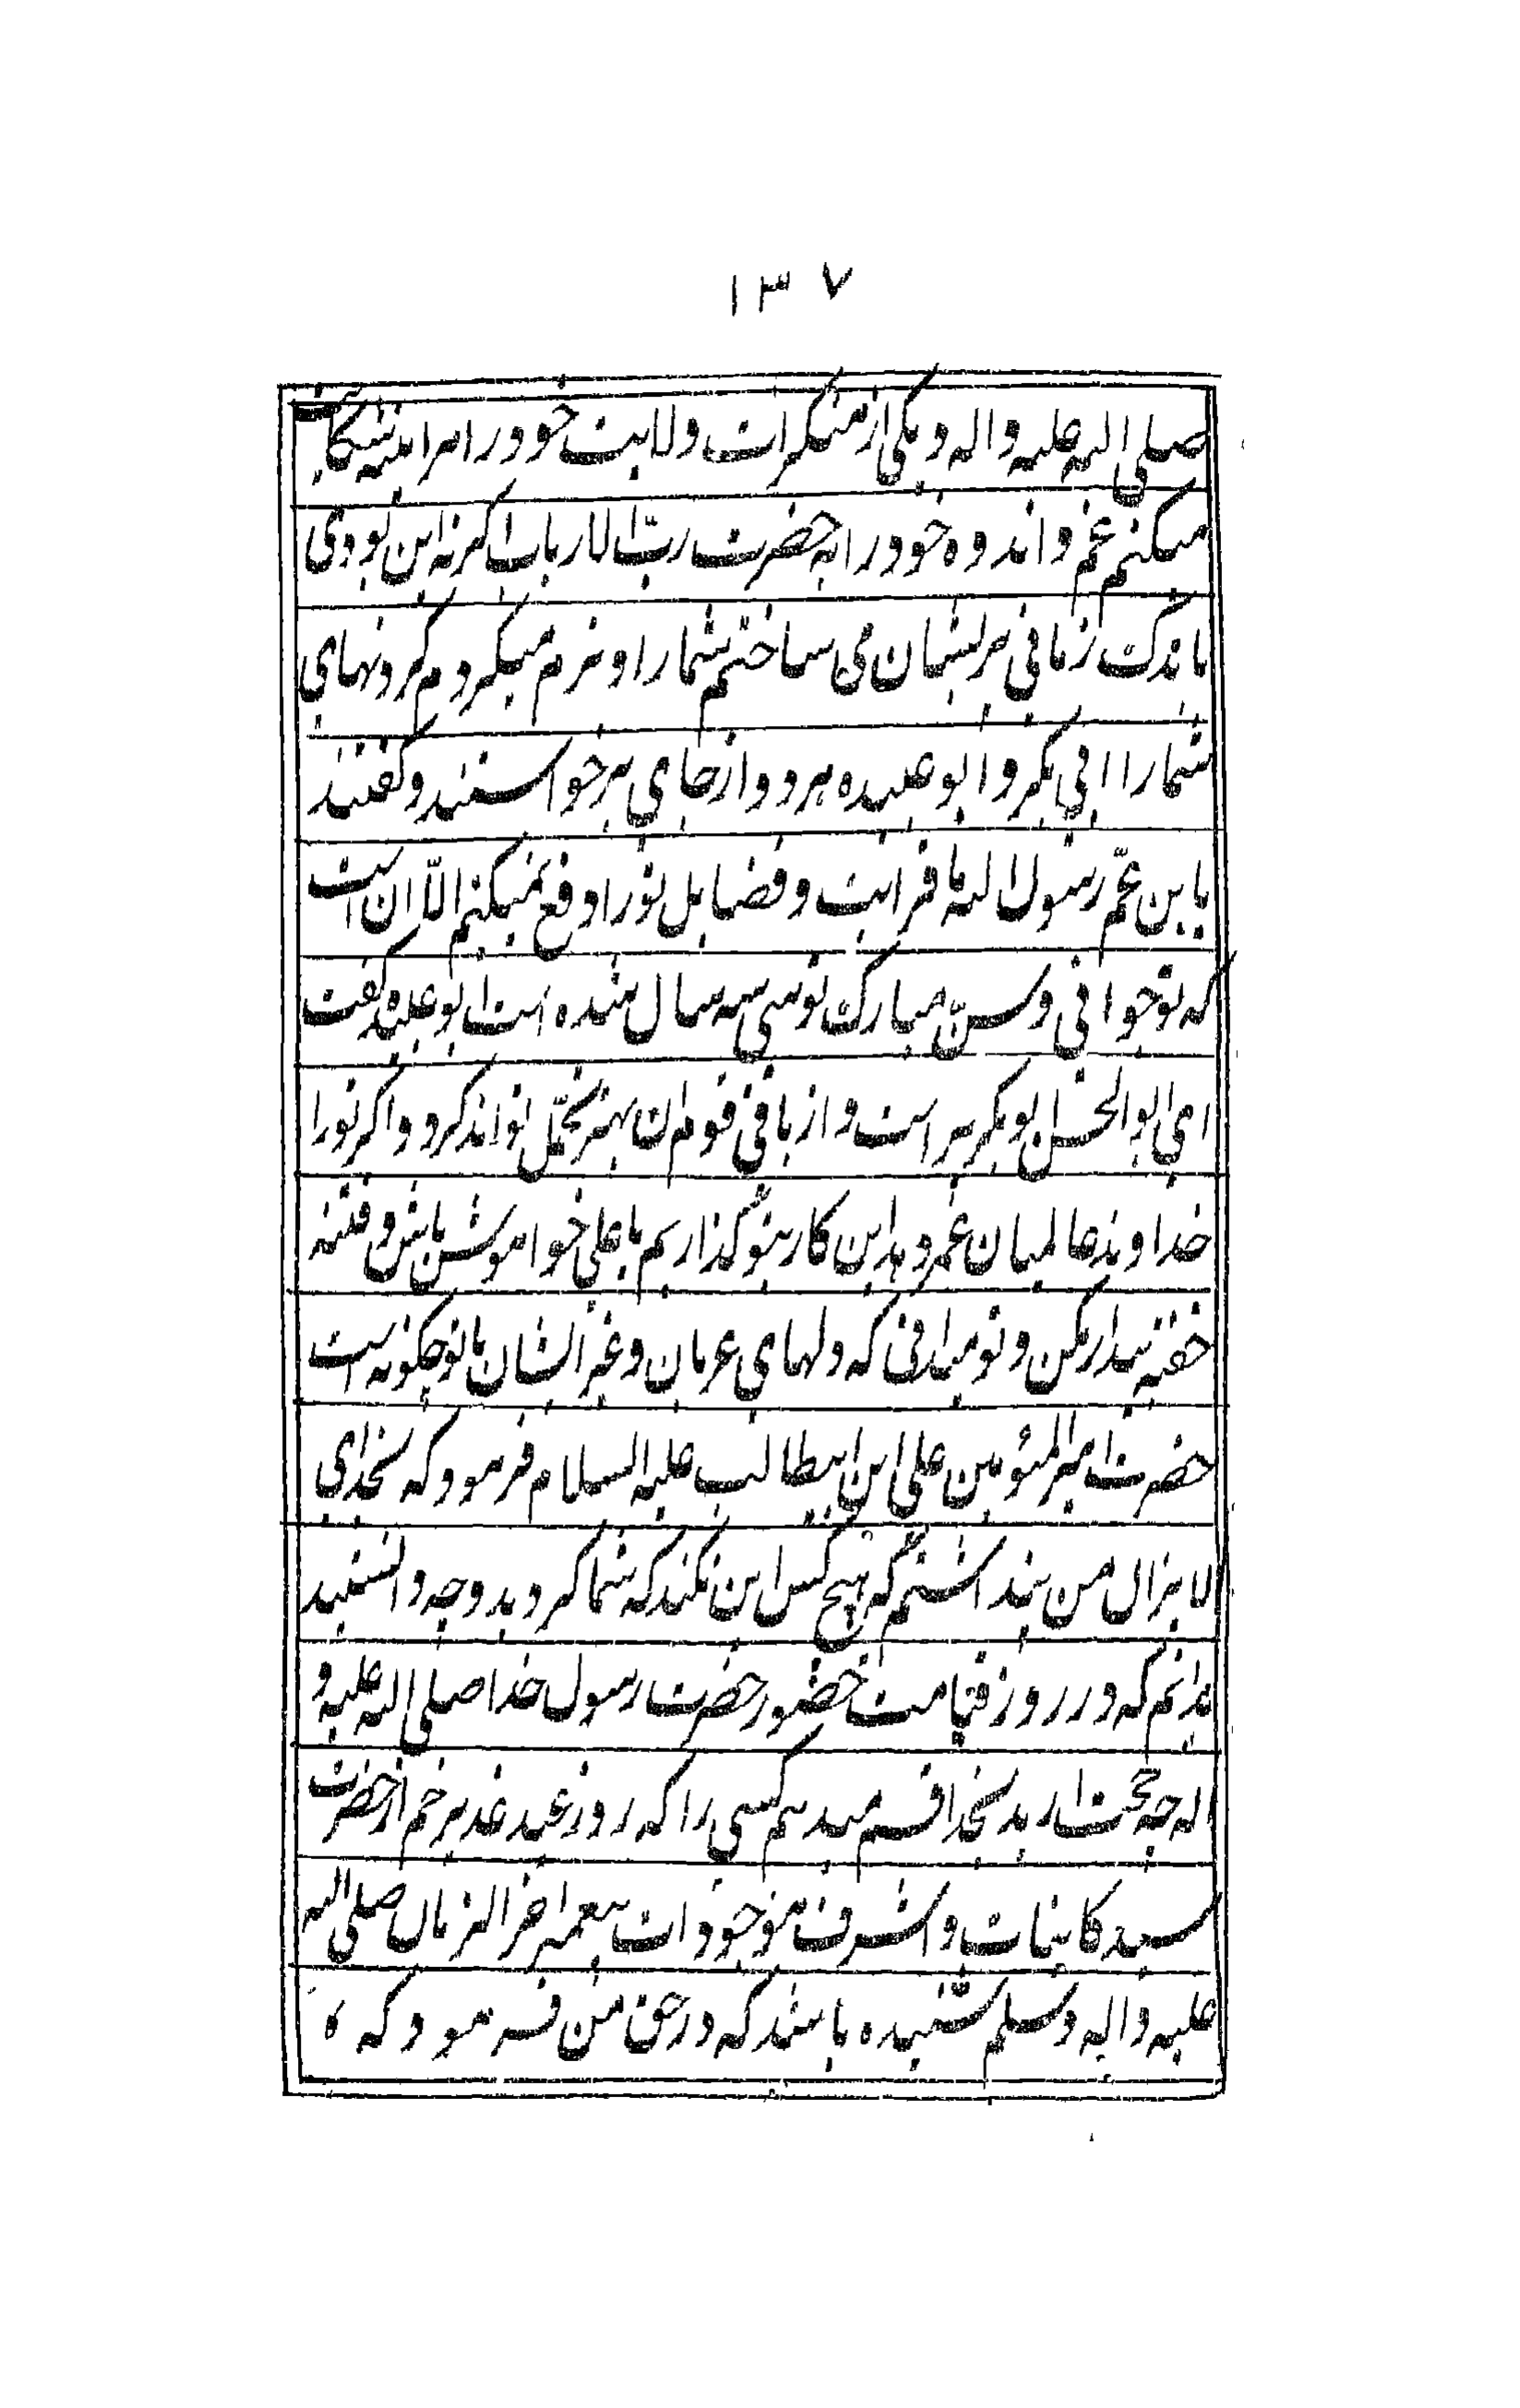 ۱۳۷
صلی الله علیه واله و یکی از منکرات ولایت خود را هر اینه شکایت
میکنم غم و اندوه خود را به حضرت ربّ الارباب اکر نه این بودی
باندک زمانی پریشان می ساختم شما را و نرم میکردم کردنهای
شما را ابی بکر و ابو عبیده هر دو از جای برخواستند و کفتند
یا بن عمّ رسول الله ما قرابت و فضایل تو را دفع نمیکنم الّا ان است
که تو جوانی و سنّ مبارک تو سی سه سال شده است ابو عبیده کفت
ای ابوالحسن ابو بکر پیر است و از باقی قوم ان بهتر تحمّل تواند کرد و اکر تو را
خداوند عالمیان عمر دهد این کار بتو کذاریم یا علی خواموش باش و فتنه
خفته بیدار مکن و تو میدانی که دلهای عربان و غیر ایشان با تو چکونه است
حضرت امیرالمئومین علی ابن ابیطالب علیه السلام فرمود که بخدای
لایزال من پنداشتم که هیچ کس این نکند که شما کردید و چه دانستید
بدانم که در روز قیامت بحضور حضرت رسول خدا صلی الله علیه و
اله چه حجت ارید بخدا قسم میدهم کسی را که روز عید غدیر خم از حضرت
سید کاینات و اشرف موجودات پیغمبر اخرالزمان صلی الله
علیه واله وسلم شنیده باشد که در حق من فرمود که